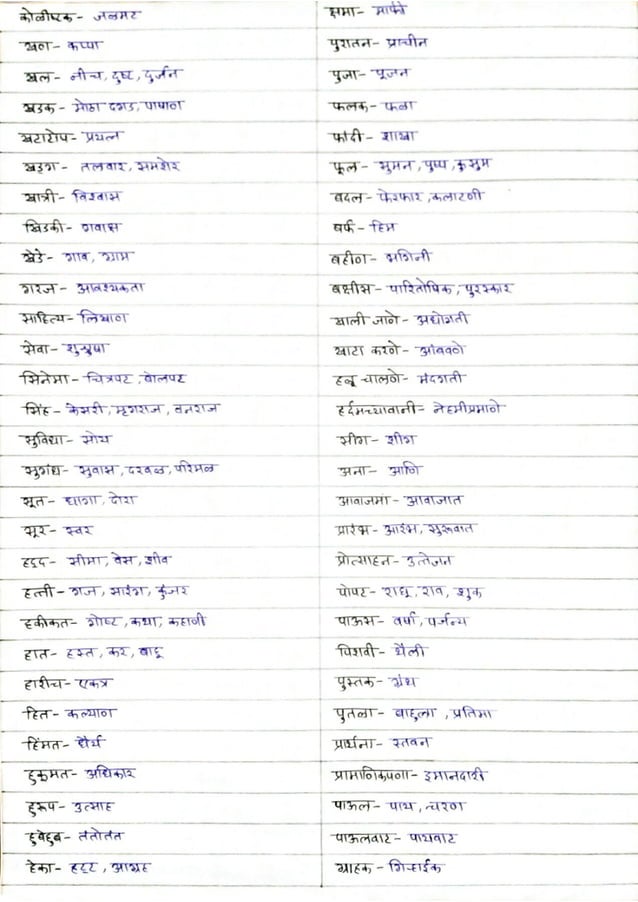 कोळीष्टक - जळमट
खण - कप्पा
खल - नीच, दुष्ट, दुर्जन
खडक - मोठा दगड, पाषाण
खटाटोप - प्रयत्न
खड्ग - तलवार, समशेर
खात्री - विश्वास
खिडकी - गवाक्ष
खेडे - गाव, ग्राम
गरज - आवश्यकता
साहित्य - लिखाण
सेवा - शुश्रूषा
सिनेमा - चित्रपट, बोलपट
सिंह - केसरी, मृगराज, वनराज
सुविधा - सोय
सुगंध - सुवास, दरवळ, परिमळ
सूत - धागा, दोरा
सूर - स्वर
हद्द - सीमा, वेस, शीव
हत्ती - गज, सारंग, कुंजर
हकीकत - गोष्ट, कथा, कहाणी
हात - हस्त, कर, बाहू
हारीच - एकत्र
हित - कल्याण
हिंमत - धैर्य
हुकुमत - अधिकार
हुरूप - उत्साह
हुबेहुब - तंतोतंत
हेका - हट्ट, आग्रह
क्षमा - माफी
पुरातन - प्राचीन
पुजा - पूजन
फलक - फळा
फांदी - शाखा
फूल - सुमन, पुष्प, कुसुम
बदल - फेरफार, कलाटणी
बर्फ - हिम
बहीण - भगिनी
बक्षीस - पारितोषिक, पुरस्कार
खाली जाणे - अधोगती
खाटा करणे - आंबवणे
हळू चालणे - मंदगती
हर्दमच्यावानी - नेहमीप्रमाणे
सींग - शींग
अना - आणि
आवाजमा - आवाजात
प्रारंभ - आरंभ, सुरूवात
प्रोत्साहन - उत्तेजन
पोपट - राघू, रावा, शुक
पाऊस - वर्षा, पर्जन्य
पिशवी - थैली
पुस्तक - ग्रंथ
पुतळा - बाहुला, प्रतिमा
प्रार्थना - स्तवन
प्रामाणिकपणा - इमानदारी
पाऊल - पाय, चरण
पाऊलवाट - पायवाट
ग्राहक - गिऱ्हाईक